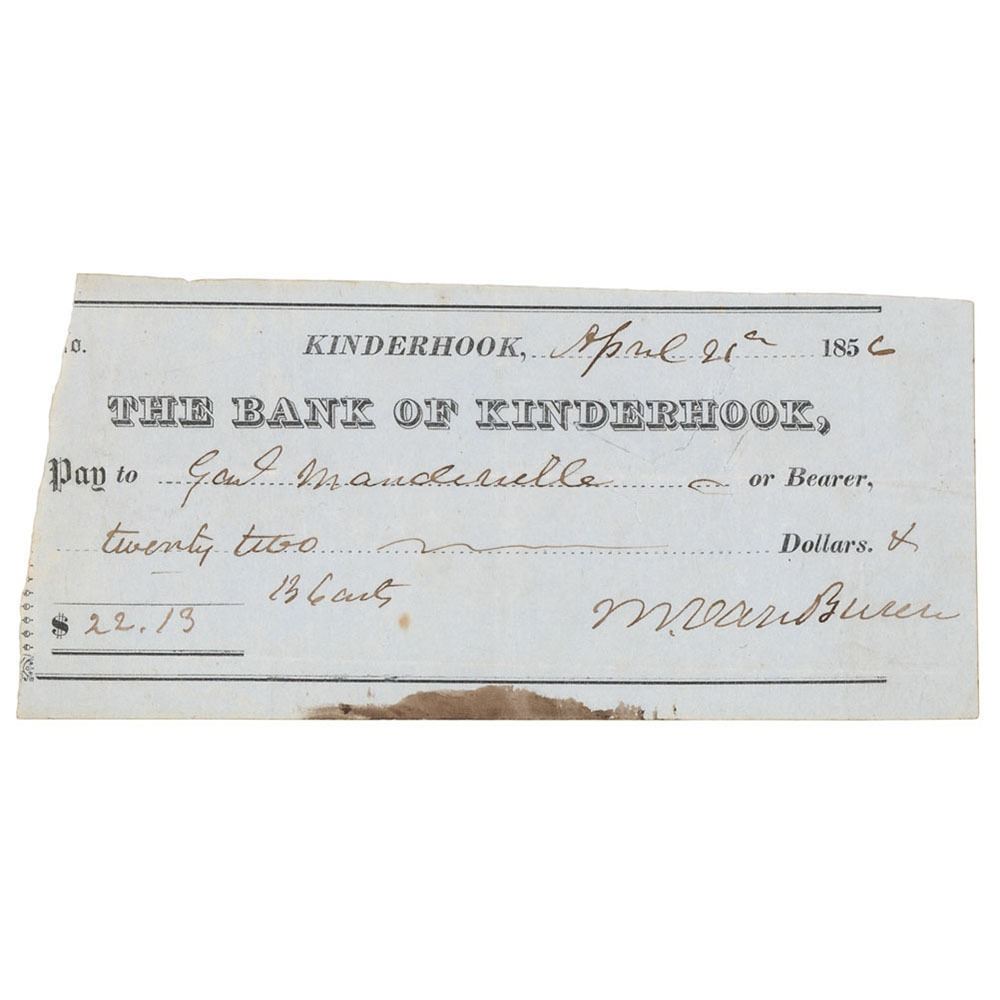 o. KINDERHOOK, April 21st 1856
THE BANK OF KINDERHOOK,
Pay to Manderville or Bearer,
twenty two Dollars. &
13 Cents
$ 22.13 M. Van Buren